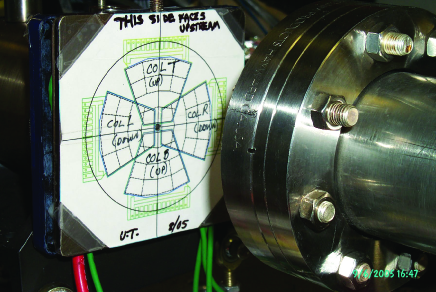 THIS SIDE FACES
UPSTREAM
COL T
(UP)
COL L
(DOWN)
COL R
(DOWN)
COL B
(UP)
U.T. 8/05
2005 16:47